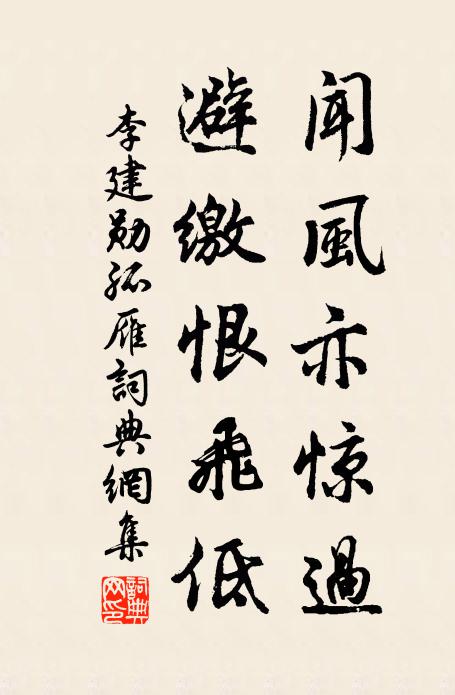 闻風亦惊過
避繳恨飛低
李建勋孤雁詞典網集
詞典网印